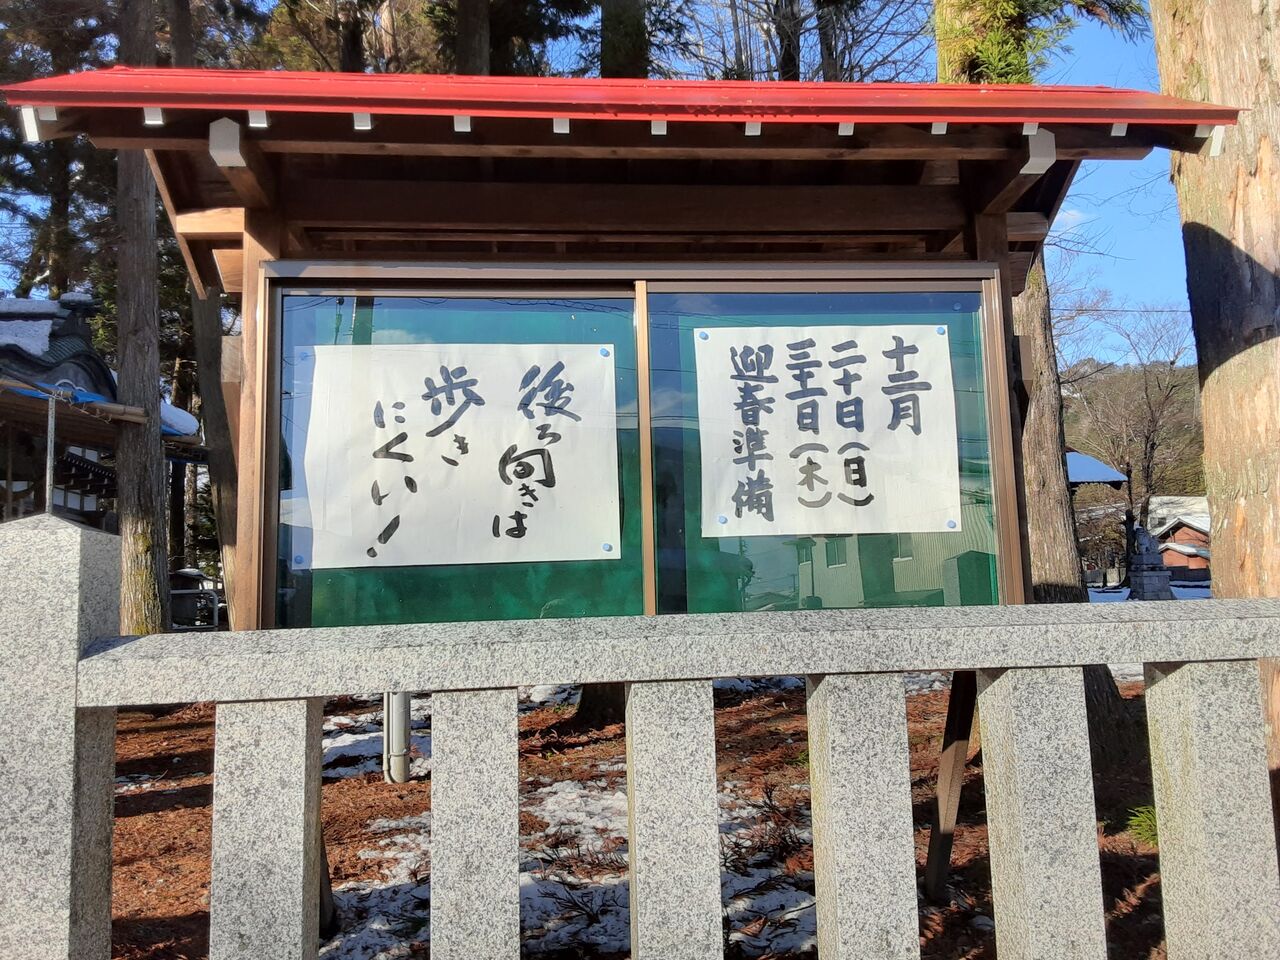 十二月
二十日（日）
三十一日（木）
迎春準備
後ろ向きは
歩き
にくい！